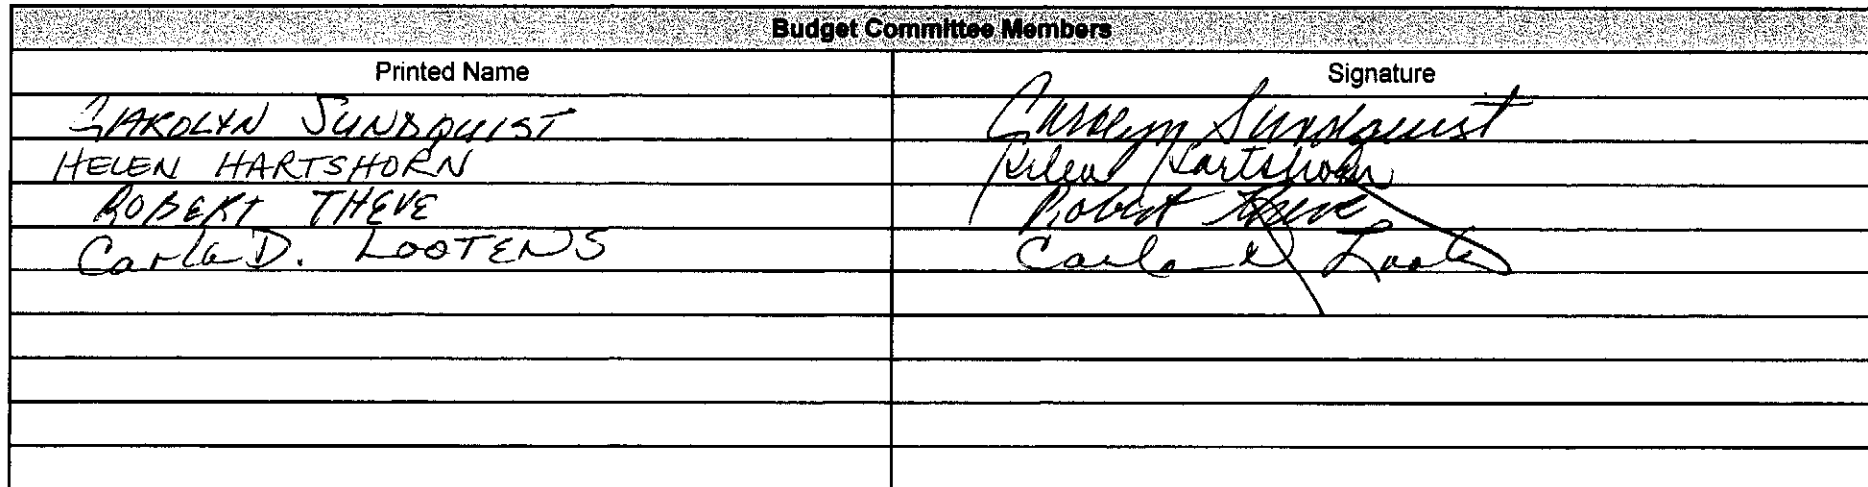 Budget Committee Members
Printed Name Signature
CAROLYN SUNDQUIST Carolyn Sundquist
HELEN HARTSHORN Helen Hartshorn
ROBERT THEVE Robert Theve
Carla D. LOOTENS Carla D Loot